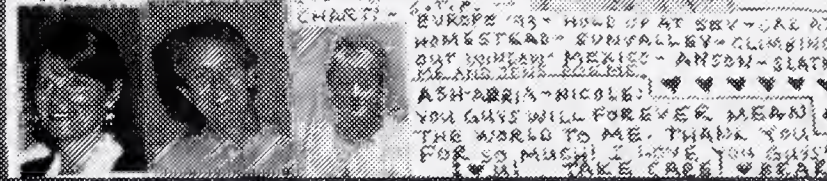 CHARTI -
EUROPE '93 - HOLD UP AT
HOMESTEAD - SUNVALLEY - CLIMBING
OUT WINDOW - MEXICO - ANSON - SLATE
ME AND JENS POEMS
ASH-ABRIA-NICOLE:
YOU GUYS WILL FOREVER MEAN
THE WORLD TO ME. THANK YOU
FOR SO MUCH! I LOVE YOU GUYS
TAKE CARE! ♥